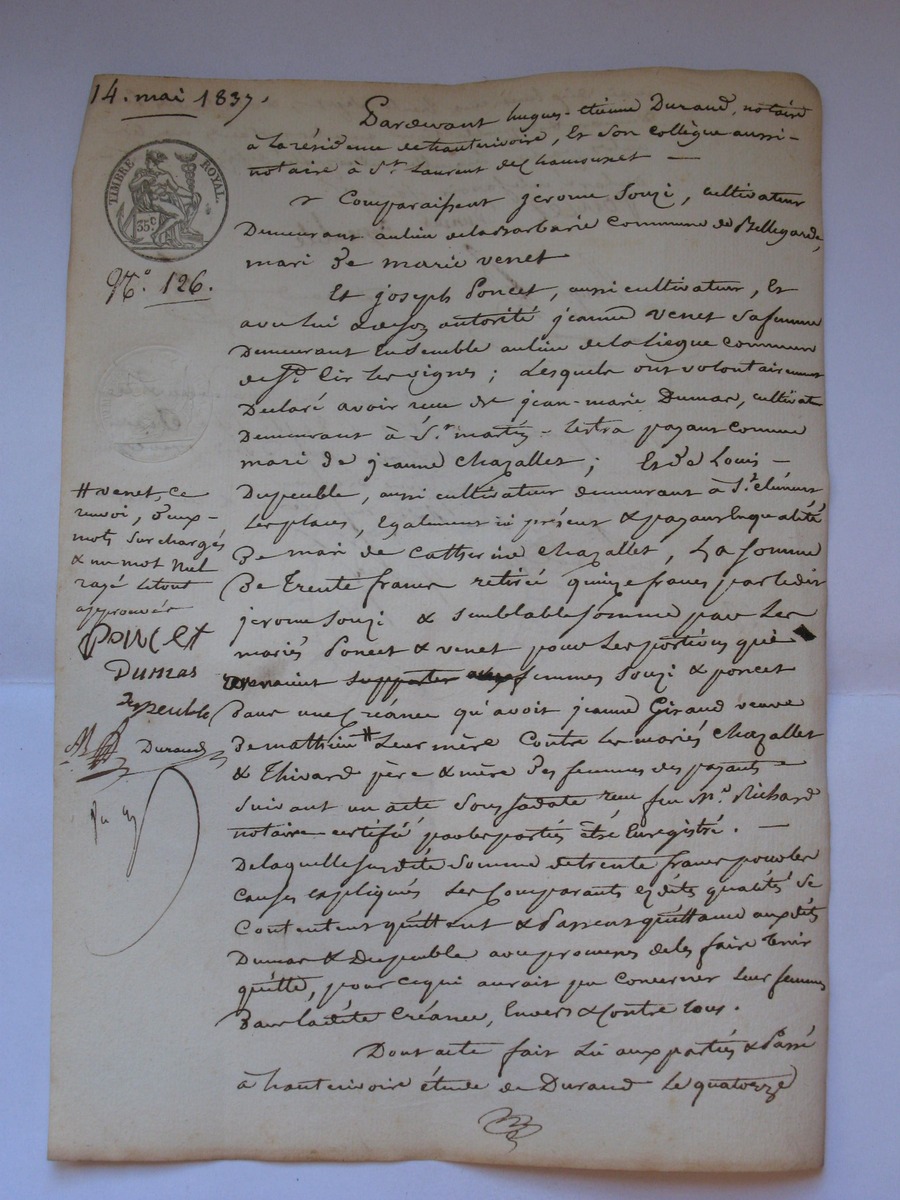 14. mai 1837.
TIMBRE ROYAL.
35 C
N.º 126.
Pardevant hugues-étienne Durand, notaire
à la résidence de hauterivoire, Et Son collègue aussi-
notaire à St. Laurent de Chamousset —
Comparaissent jerome Souzi, cultivateur
Demeurant au lieu de la Barbarie commune de Bellegarde,
mari de marie venet
Et joseph Poncet, aussi cultivateur, Et
avec lui & de son autorité jeanne venet Sa femme
Demeurant Ensemble au lieu de la Liegue commune
de St. Cir les vignes ; Lesquels ont volontairement
Declaré avoir reçu de jean-marie Dumas, cultivat
Demeurant à St. martin-lestra payant comme
mari de jeanne Chazallet ; Et de Louis-
Dupeuble, aussi cultivateur demeurant à St. clément
les places, Egalement ici présent & payant En qualité
De mari de Catherine Chazallet, La Somme
De Trente francs retirée quinze francs par ledit
jerome Souzi & Semblable Somme par Les
mariés Poncet & venet pour Les portions que
femmes Souzi & poncet
Dans une Créance qu'avait jeanne Giraud veuve
De mathieu # Leur mère Contre Les mariés Chazallet
& Thivard père & mère Des femmes des payants
Suivant un acte Sous Sa date reçu feu Me. Richard
notaire certifié par les parties être Enregistré. —
De laquelle Susdite Somme de trente francs pour les
Causes expliqués Les Comparants esdits qualités Se
Contentent quittent & Passent quittance auxdits
Dumas & Dupeuble avec promesse de les faire tenir
quitte, pour ce qui aurait pu concerner Leur femmes
Dans ladite Créance, Envers & Contre tous.
Dont acte fait Lu aux parties & Passé
à hauterivoire étude de Durand Le quatorze
# venet, ce
renvoi, deux-
mots Surchargés
& un mot Nul
rayé le tout
approuvés
Poncet
Dumas
dupeuble
Durand